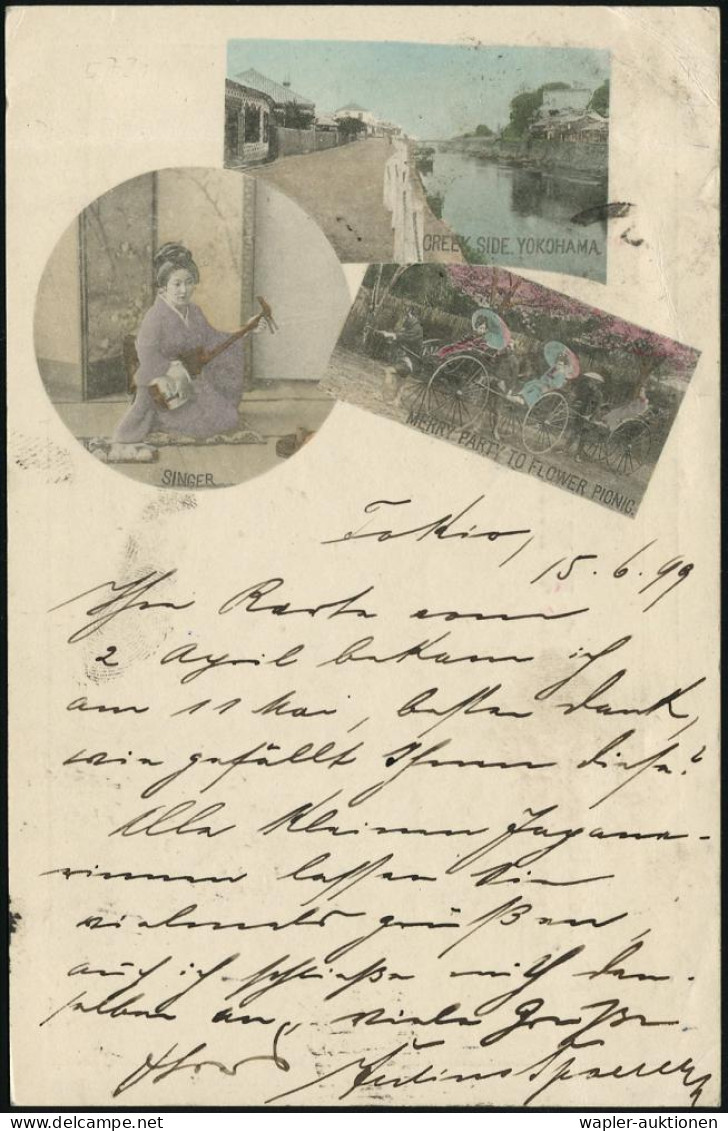 CREEK SIDE. YOKOHAMA.
MERRY PARTY TO FLOWER PICNIC.
SINGER
Tokio,
15. 6. 99
Ihre Karte vom
2 April bekam ich
am 11 Mai, besten Dank,
wie gefällt Ihnen diese?
Alle kleinen Japane-
rinnen lassen Sie
vielmals grüßen,
auch ich schließe mich den-
selben an, viele Grüße
Julius
wapler-auktionen